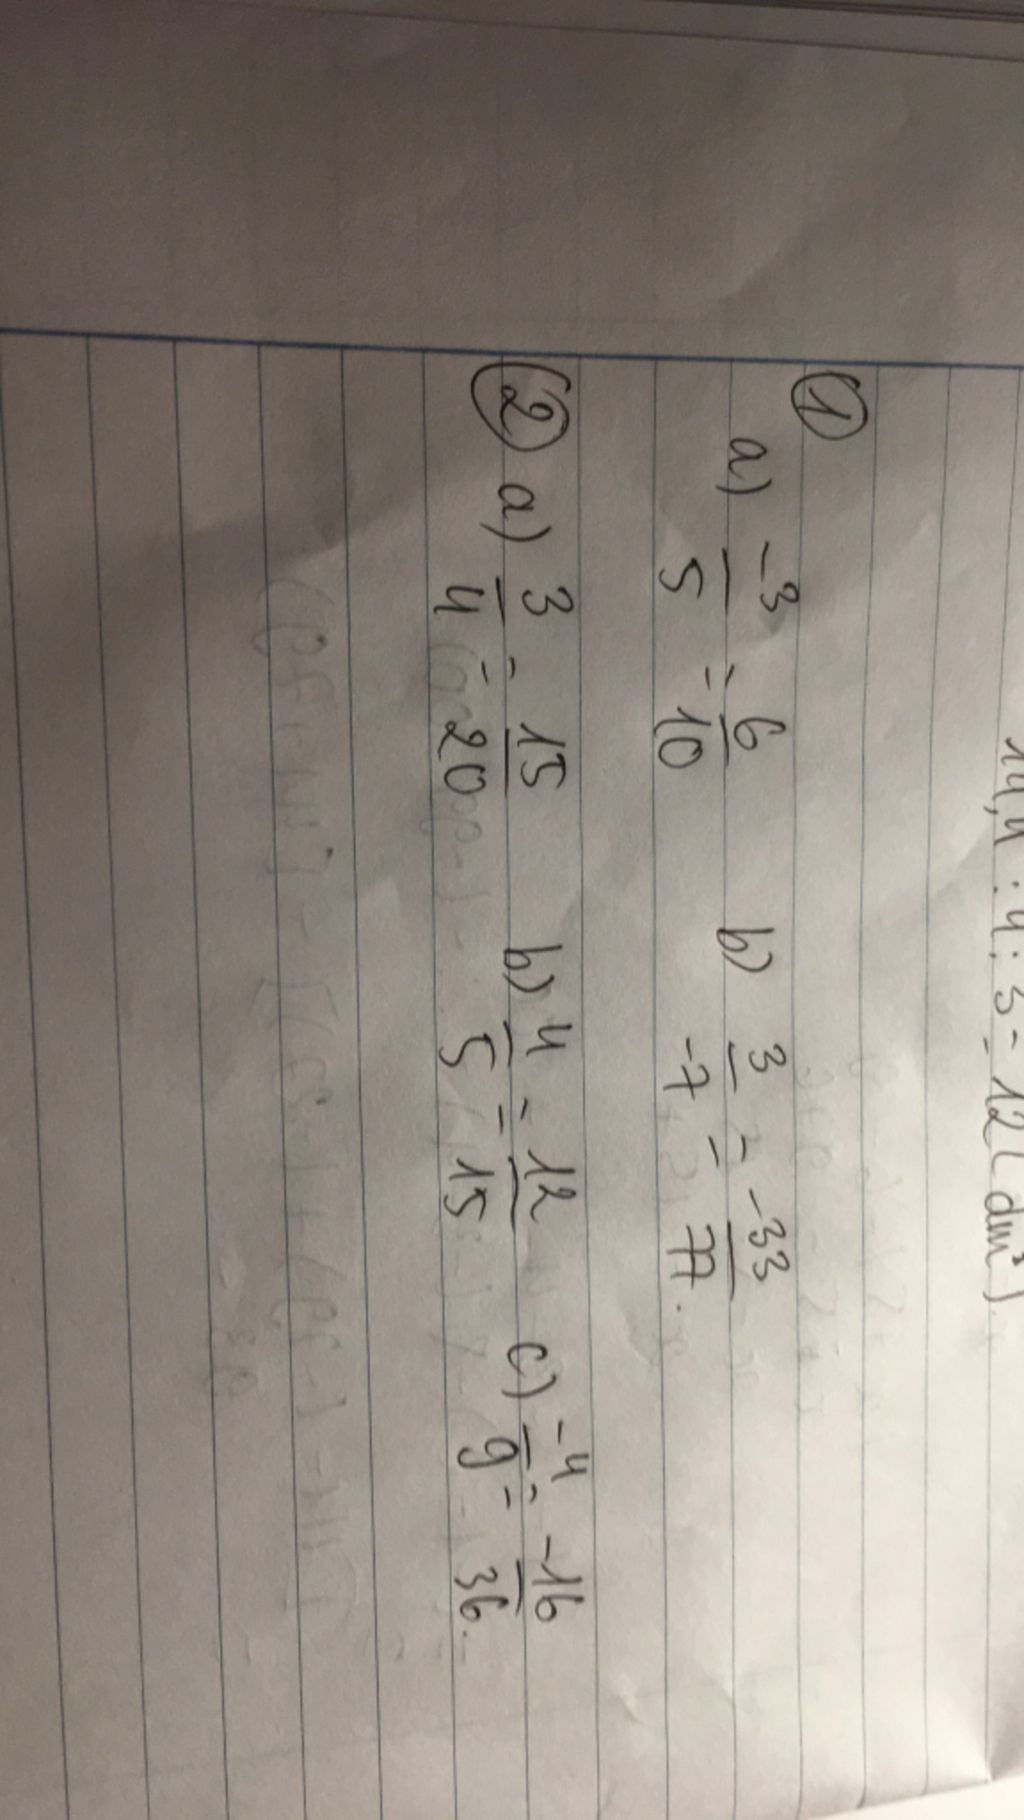 14,4 : 4 : 3 = 12 (dm³).
①
a) -3/5 = 6/10 b) 3/-7 = -33/77.
② a) 3/4 = 15/20 b) 4/5 = 12/15 c) -4/9 = -16/36.